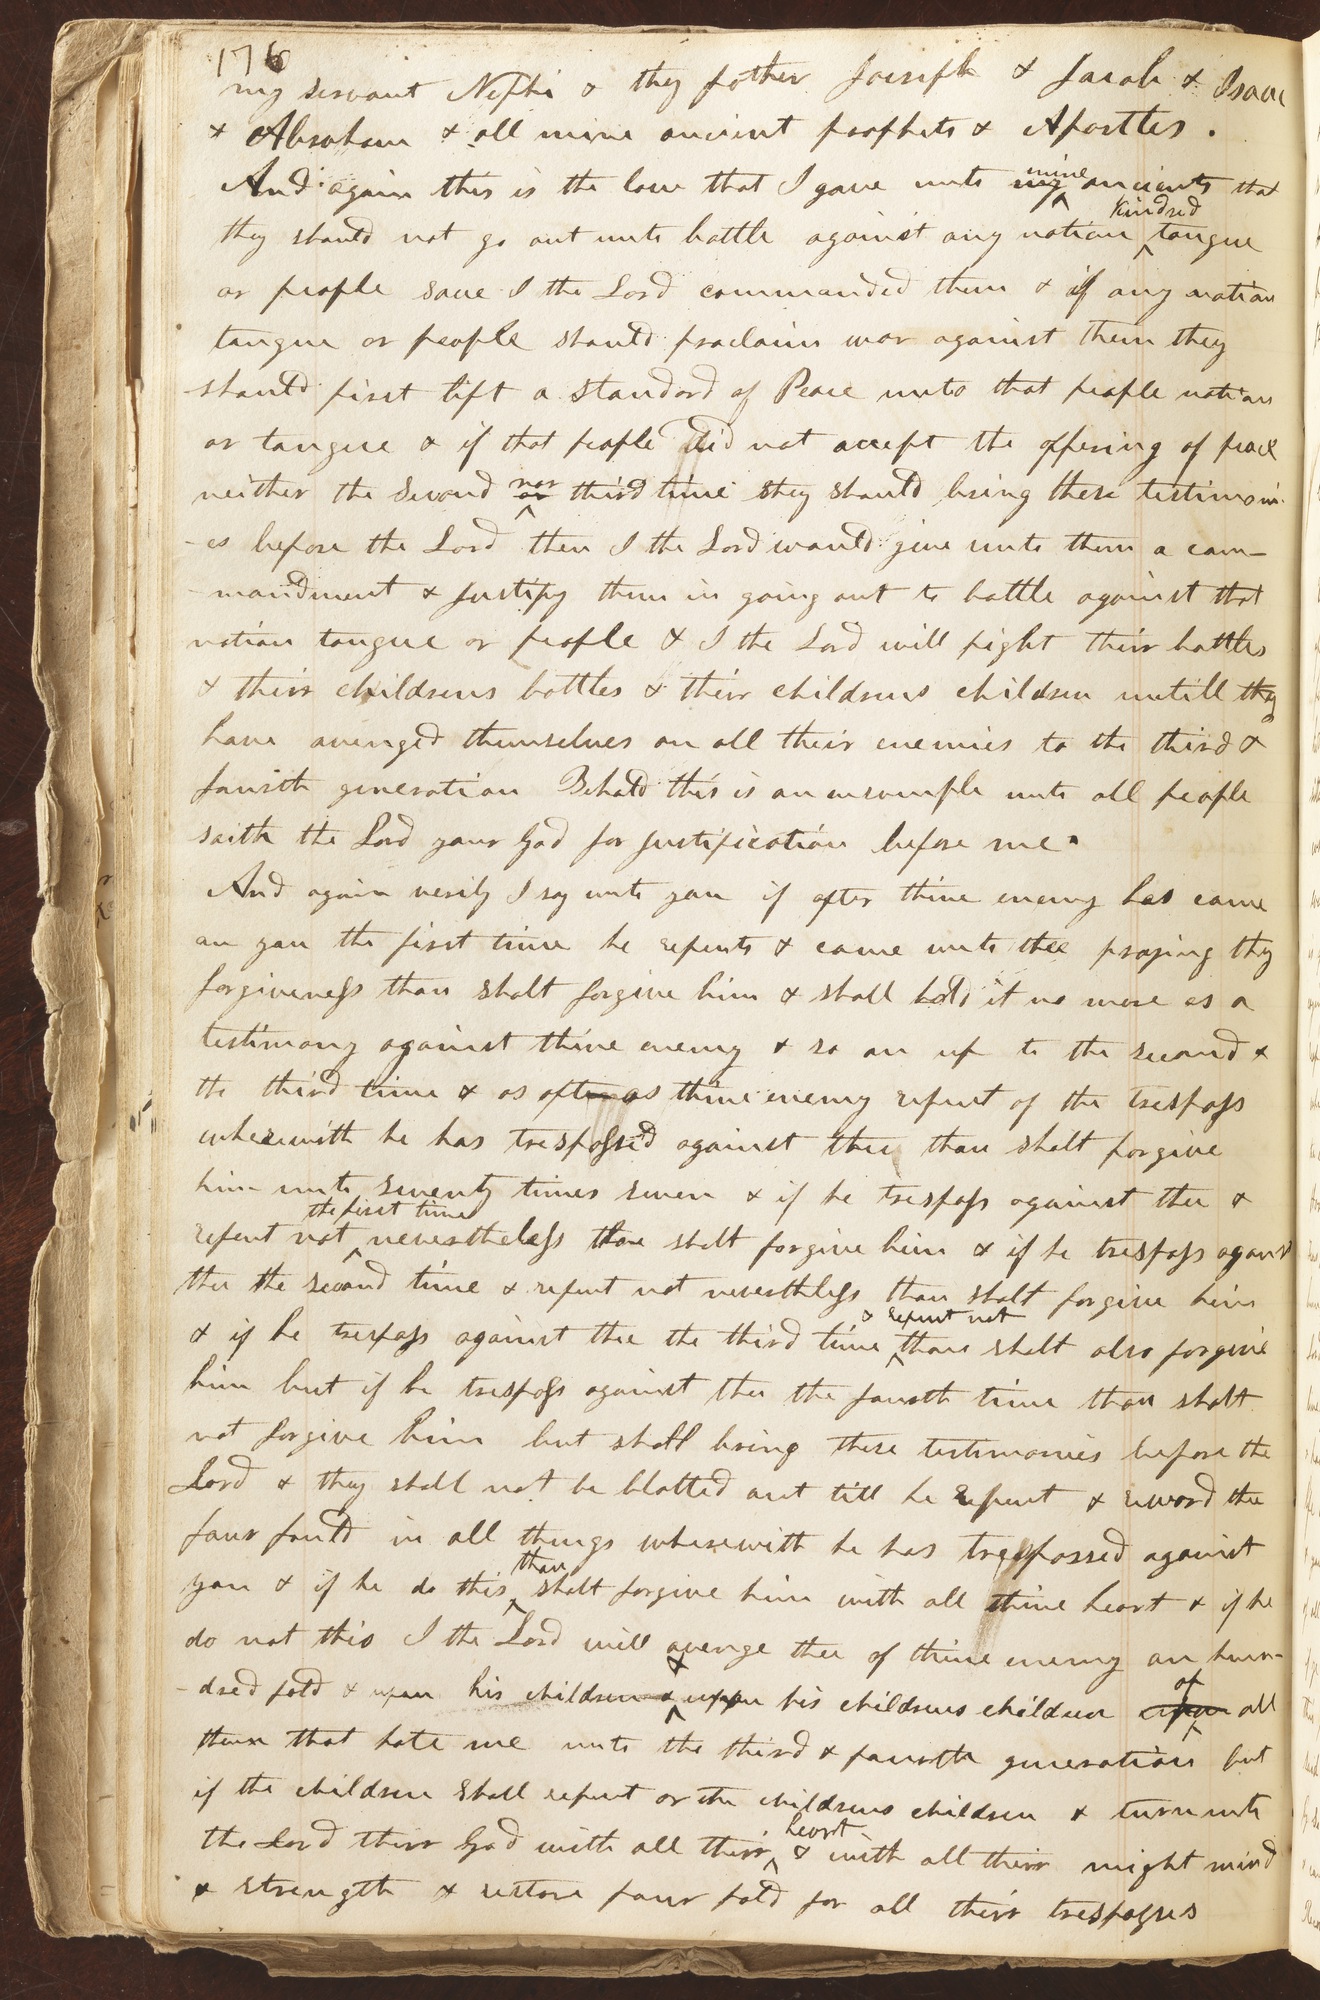 176
my servant Nephi & thy father Joseph & Jacob & Isaac
& Abraham & all mine ancient prophets & Apostles.
And again this is the law that I gave unto my mine ancients that
they should not go out unto battle against any nation kindred tongue
or people save I the Lord commanded them & if any nation
tongue or people should proclaim war against them they
should first lift a standard of Peace unto that people nation
or tongue & if that people did not accept the offering of peace
neither the second or nor third time they should bring these testimoni-
-es before the Lord then I the Lord would give unto them a com-
-mandment & Justify them in going out to battle against that
nation tongue or people & I the Lord will fight their battles
& their childrens battles & their childrens children untill they
have avenged themselves on all their enemies to the third &
fourth generation Behold this is an ensample unto all people
saith the Lord your God for Justification before me.
And again verily I say unto you if after thine enemy has come
on you the first time he repents & come unto thee praying thy
forgiveness thou shalt forgive him & shall hold it no more as a
testimony against thine enemy & so on up to the second &
the third time & as often as thine enemy repent of the trespass
wherewith he has trespassed against thee thou shalt forgive
him unto seventy times seven & if he trespass against thee &
repent not the first time nevertheless thou shalt forgive him & if he trespass against
thee the second time & repent not neverthless thou shalt forgive him
& if he trespass against thee the third time & repent not thou shalt also forgive
him but if he trespass against thee the fourth time thou shalt
not forgive him but shall bring these testimonies before the
Lord & they shall not be blotted out till he repent & reword thee
four fould in all things wherewith he has trespassed against
you & if he do this thou shalt forgive him with all thine heart & if he
do not this I the Lord will avenge thee of thine enemy an hun-
-dred fold & upon his children & upon & his childrens children upon of all
them that hate me unto the third & fourth generation but
if the children shall repent or the childrens children & turn unto
the Lord their God with all their heart & with all their might mind
& strength & restore four fold for all their trespasses